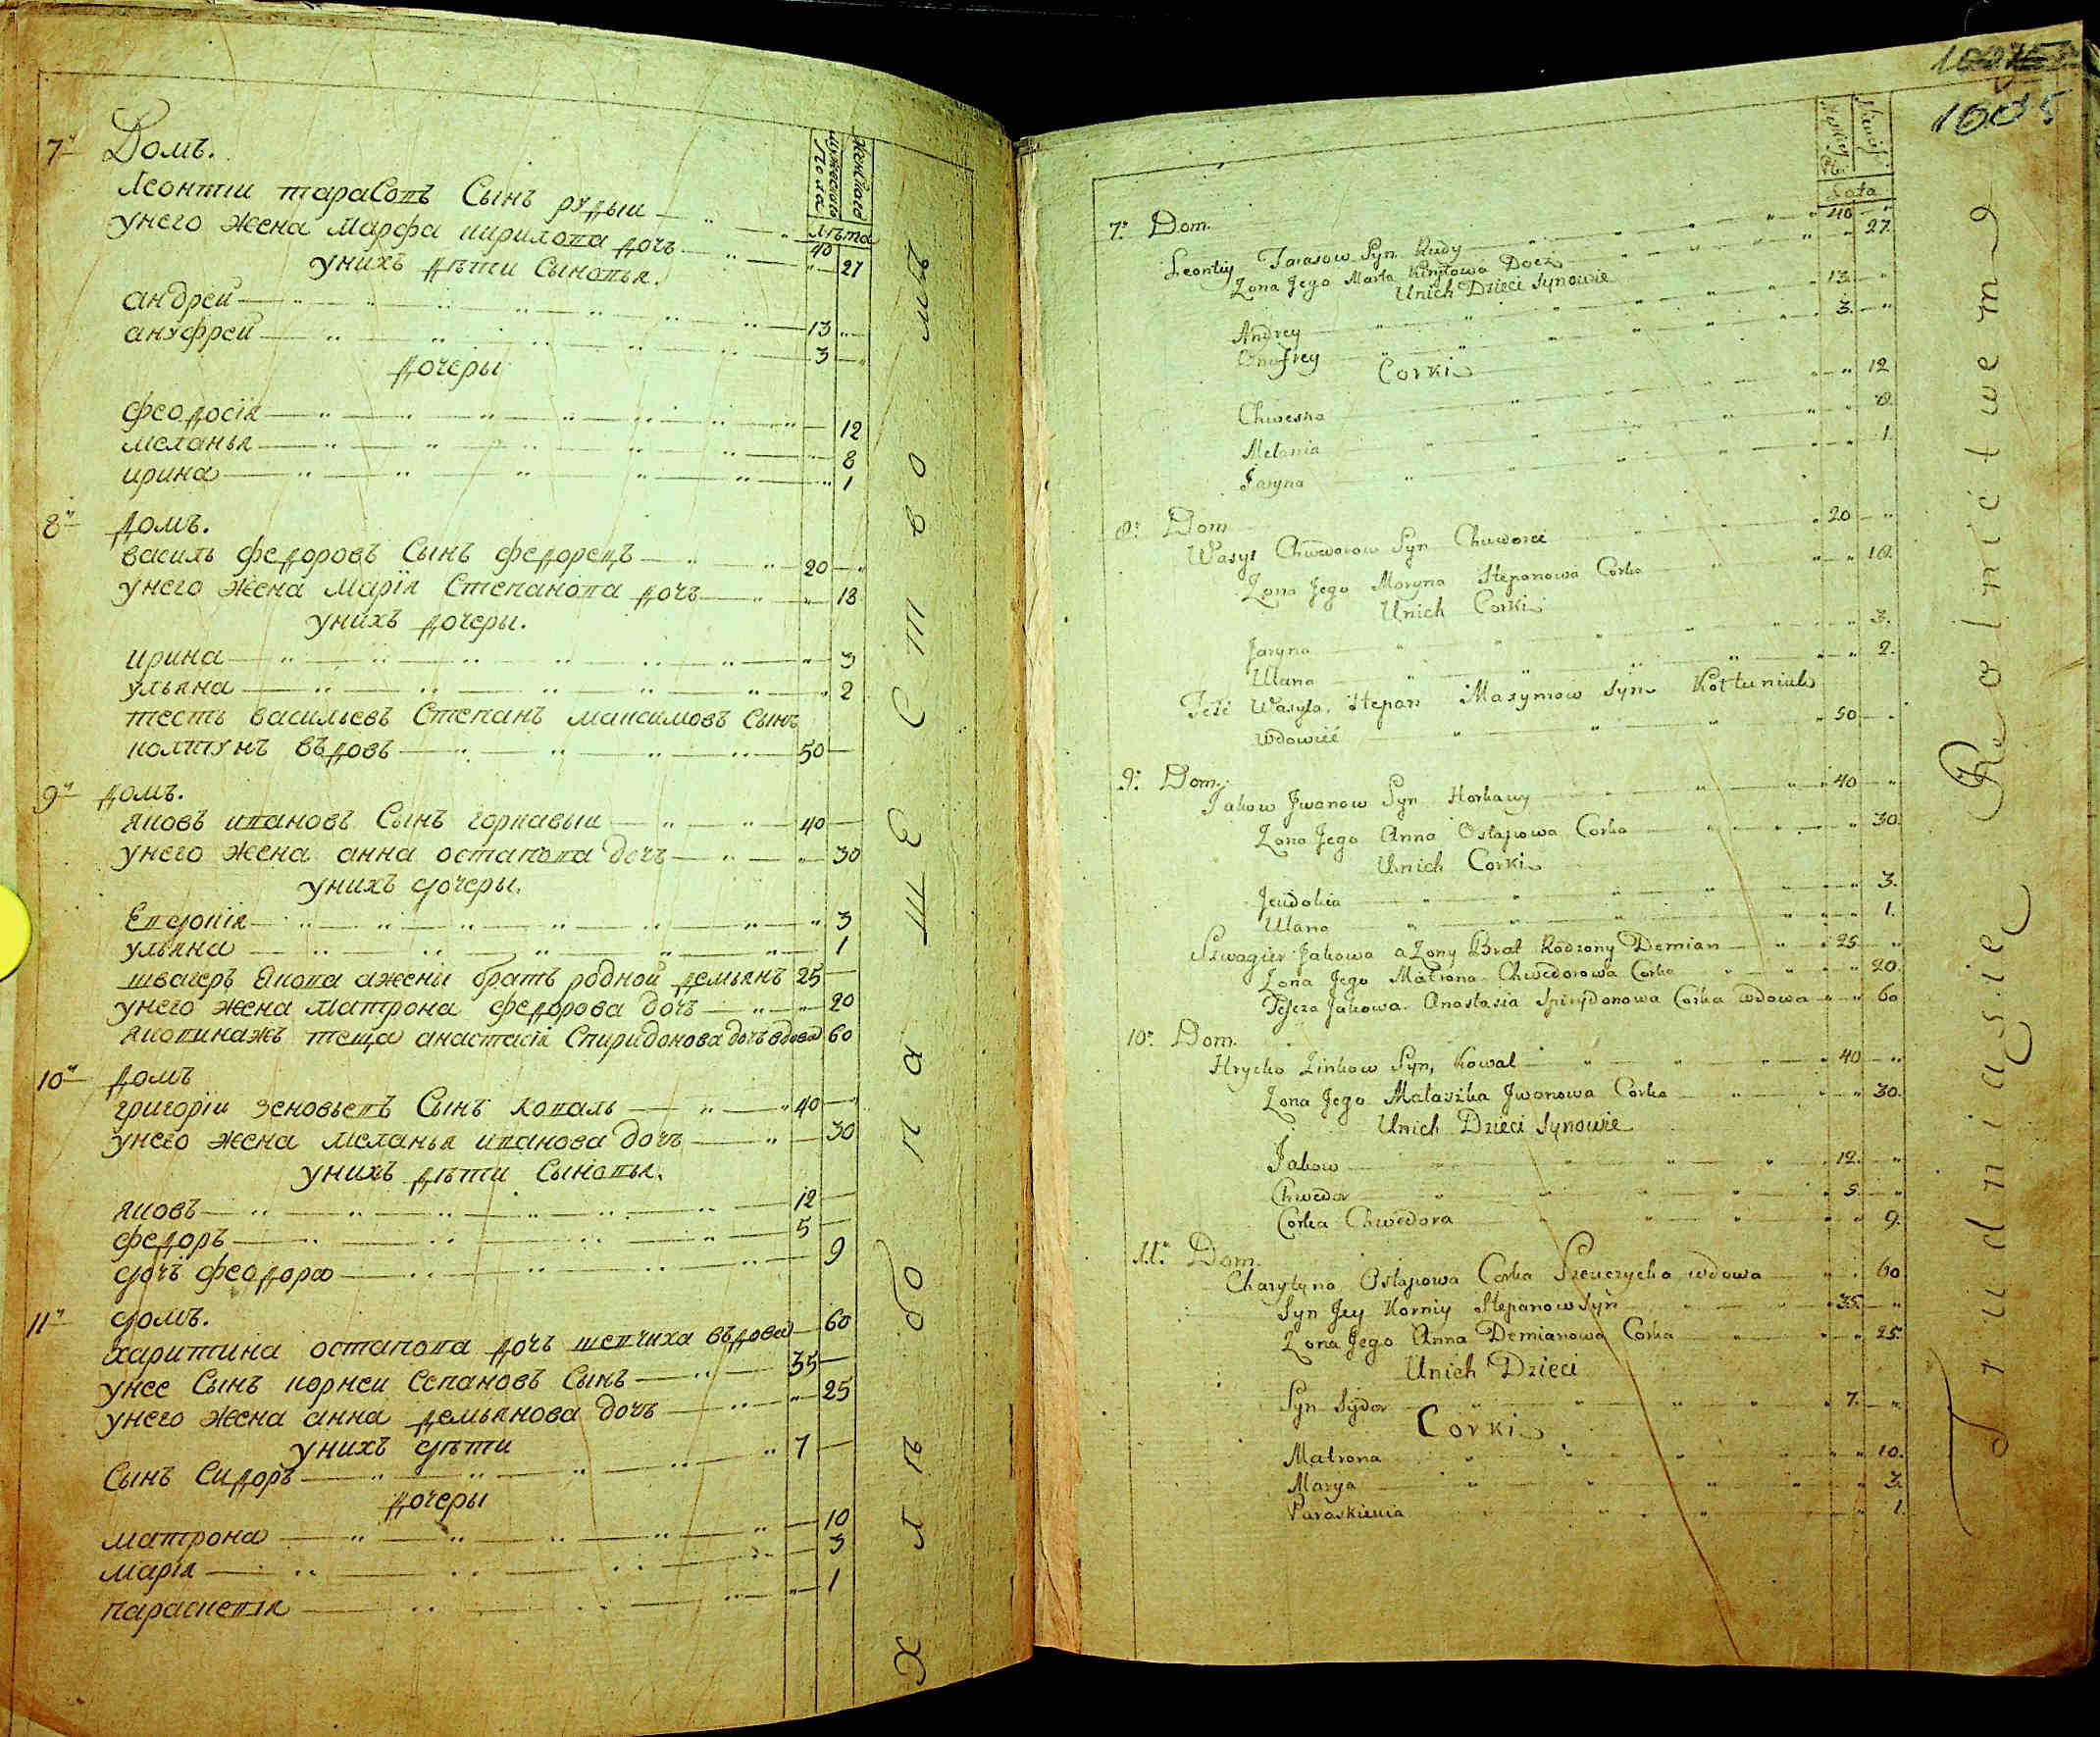 7й Домъ.
мужескаго Пола
женскаго
лѣта
Леонтіи тарасовъ Сынъ рудыи 40
унего жена Марфа кирилова дочь 27
унихъ дѣти Сыновья.
андреи 13
ануфреи 3
дочеры
феодосія 12
меланья 8
ирина 1
8й домъ.
василь федоровъ Сынъ федорецъ 20
унего жена Марія Степанова дочь 18
унихъ дочеры.
ирина 3
ульяна 2
тесть васильевъ Степанъ максимовъ Сынъ
колтунъ въдовъ 50
9й домъ.
яковъ ивановъ Сынъ горкавыи 40
унего жена анна остапова дочь 30
унихъ дочеры.
Евдокія 3
ульяна 1
швагеръ якова ажены братъ родной демьянъ 25
унего жена матрона федорова дочь 20
яковинажъ теща анастасія Спиридонова дочь вдова 60
10й домъ
григоріи зеновьевъ Сынъ коваль 40
унего жена меланья иванова дочь 30
унихъ дѣти Сыновья.
яковъ 12
федоръ 5
дочь феодора 9
11й домъ.
харитина остапова дочь шевчиха въдова 60
унее Сынъ корнеи Сепановъ Сынъ 35
унего жена анна демьянова дочь 25
унихъ дѣти
Сынъ Сидоръ 7
дочеры
матрона 10
марія 3
параскевія 1
хлѣбопашествомъ
1005
Lata
7o Dom.
Leontiy Tarasow Syn Rudy 40
Zona Jego Marta Kirylowa Docz 27
Unich Dzieci Synowie
Andrey 13
Onofrey 3
Corki
Chweska 12
Melania 8
Jaryna 1
8o Dom
Wasyl Chwedorow Syn Chwedorec 20
Zona Jego Maryna Stepanowa Corka 18
Unich Corki
Jaryna 3.
Ulana 2.
Teść Wasyla. Stepan Maxymow Syn Kołtuniuk
Wdowiec 50
9o Dom
Jakow Jwanow Syn Horkawy 40
Zona Jego Anna Ostapowa Corka 30
Unich Corki
Jeudokia 3.
Ulana 1.
Szwagier Jakowa a Zony Brat Rodzony Demian 25
Zona Jego Matrona Chwedorowa Corka 20.
Teszcza Jakowa Anastasia Spirydonowa Corka wdowa 60
10o Dom.
Hrycko Zinkow Syn, Kowal 40
Zona Jego Małaszka Jwanowa Corka 30.
Unich Dzieci Synowie
Jakow 12.
Chwedor 5.
Corka Chwedora 9.
11o Dom
Charytyna Ostapowa Corka Szewczycha wdowa 60
Syn Jey Korniy Stepanow Syn 35
Zona Jego Anna Demianowa Corka 25.
Unich Dzieci
Syn Sydor 7.
Corki
Matrona 10.
Marya 3.
Paraskiewia 1.
Trudniąsię Rolnictwem